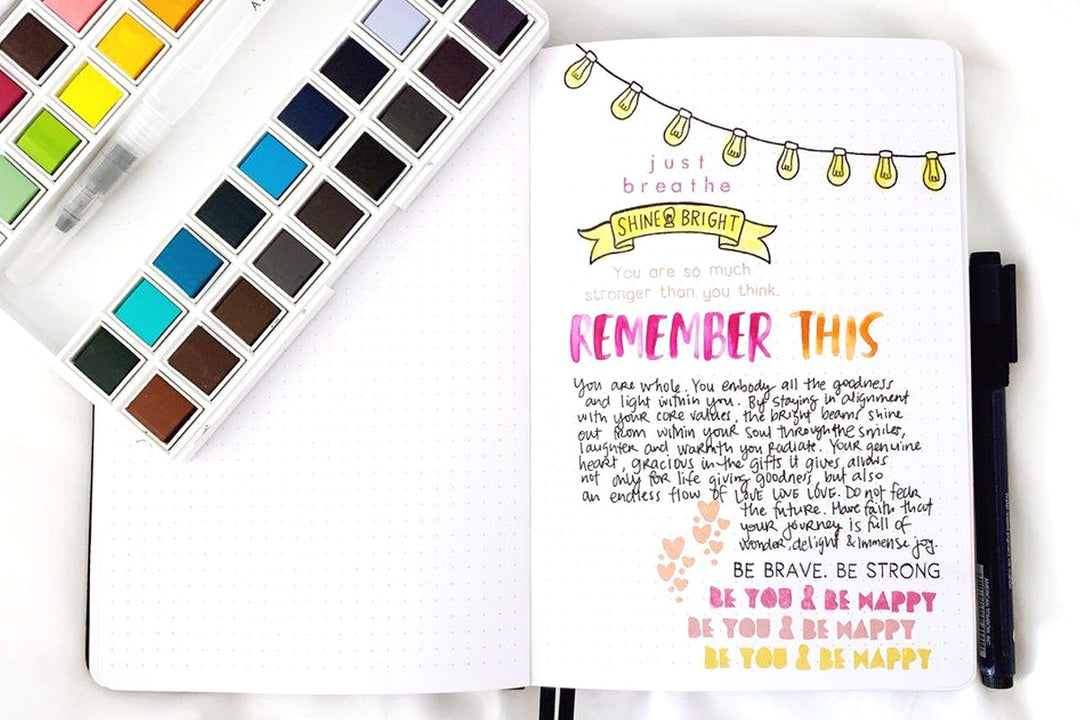 just
breathe
SHINE BRIGHT
You are so much
stronger than you think.
REMEMBER THIS
You are whole. You embody all the goodness
and light within you. By staying in alignment
with your core values, the bright beams shine
out from within your soul through the smiles,
laughter and warmth you radiate. Your genuine
heart, gracious in the gifts it gives, allows
not only for life giving goodness, but also
an endless flow of LOVE LOVE LOVE. Do not fear
the future. Have faith that
your journey is full of
wonder, delight & immense joy.
BE BRAVE. BE STRONG
BE YOU & BE HAPPY
BE YOU & BE HAPPY
BE YOU & BE HAPPY
AMERICAN TOMBOW, INC.